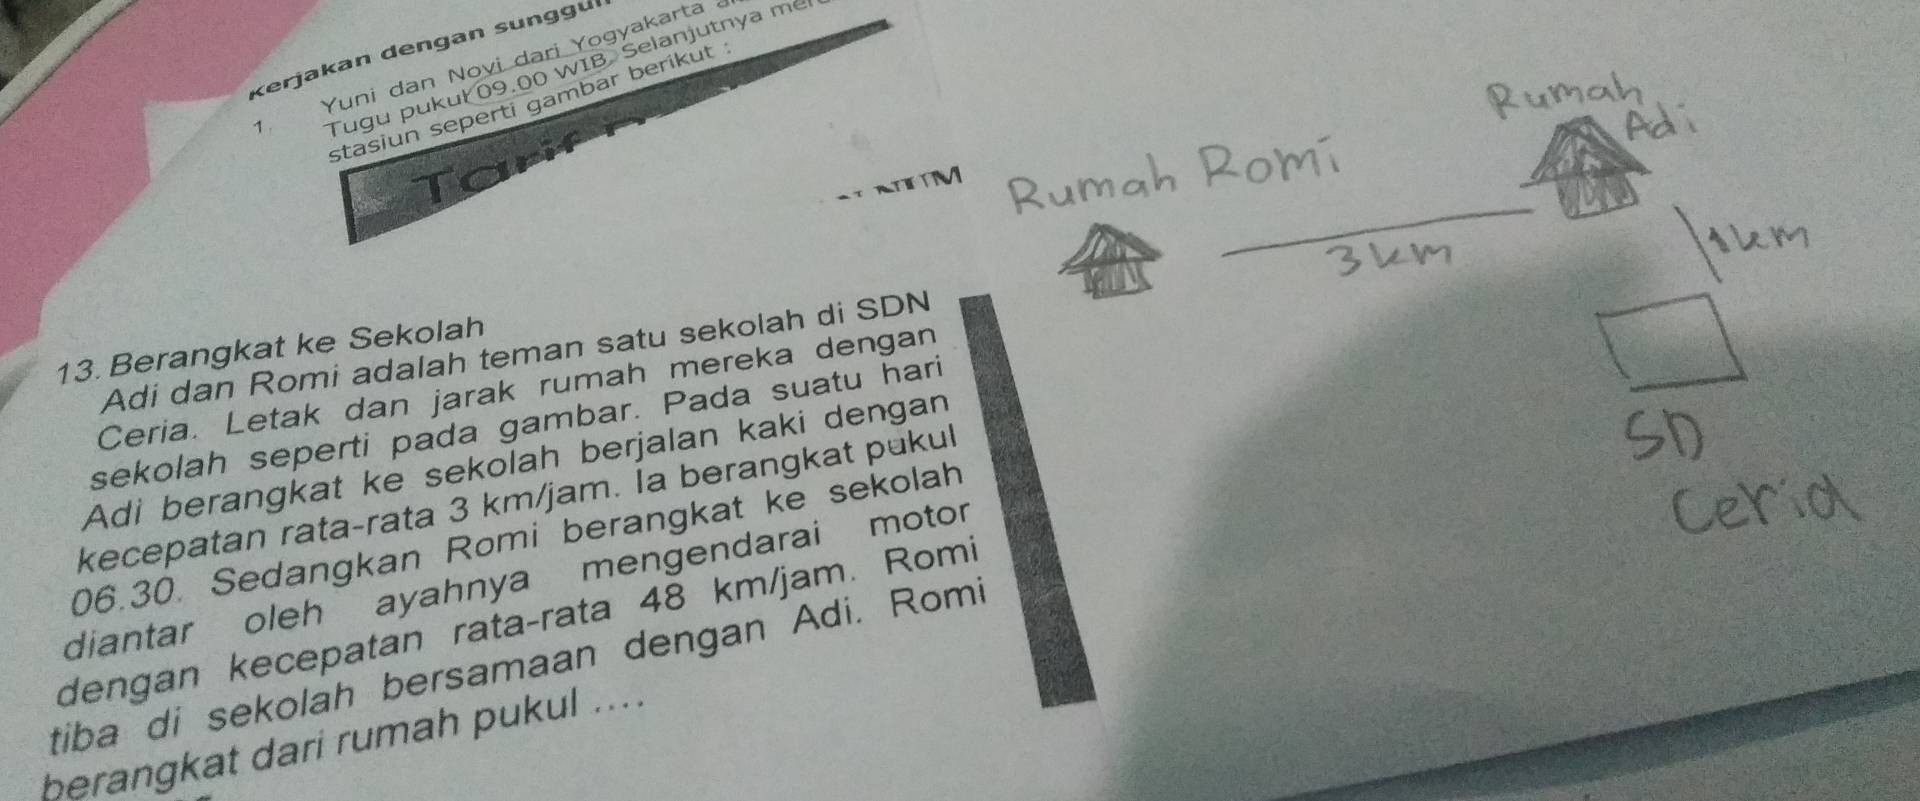 Kerjakan dengan
1. Yuni dan Novi dari Yogyakarta
Tugu pukul 09.00 WIB. Selanjutnya
stasiun seperti gambar berikut :
Tarif
13. Berangkat ke Sekolah
Adi dan Romi adalah teman satu sekolah di SDN
Ceria. Letak dan jarak rumah mereka dengan
sekolah seperti pada gambar. Pada suatu hari
Adi berangkat ke sekolah berjalan kaki dengan
kecepatan rata-rata 3 km/jam. Ia berangkat pukul
06.30. Sedangkan Romi berangkat ke sekolah
diantar oleh ayahnya mengendarai motor
dengan kecepatan rata-rata 48 km/jam. Romi
tiba di sekolah bersamaan dengan Adi. Romi
berangkat dari rumah pukul ....
Rumah Romi
Rumah
Adi
3 km
1 km
SD
Ceria